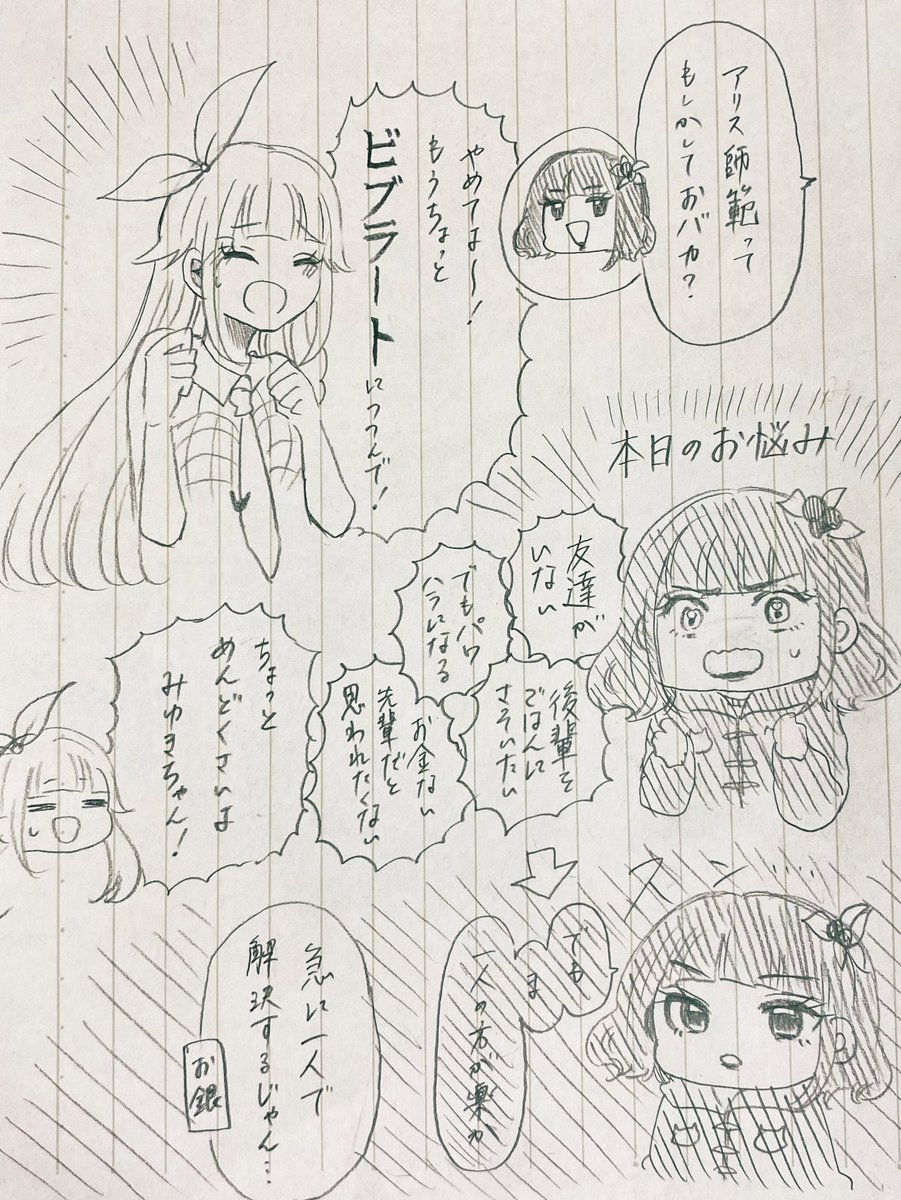 アリス師範って
もしかしておバカ？
やめてよ〜！
もうちょっと
ビブラートにつつんで！
本日のお悩み
友達が
いない
でもパワ
ハラになる
後輩を
ごはんに
さそいたい
お金ない
先輩だと
思われたくない
ちょっと
めんどくさいよ
みゆきちゃん！
スン…
でも
ま
一人の方が楽か
急に一人で
解決するじゃん…
お銀